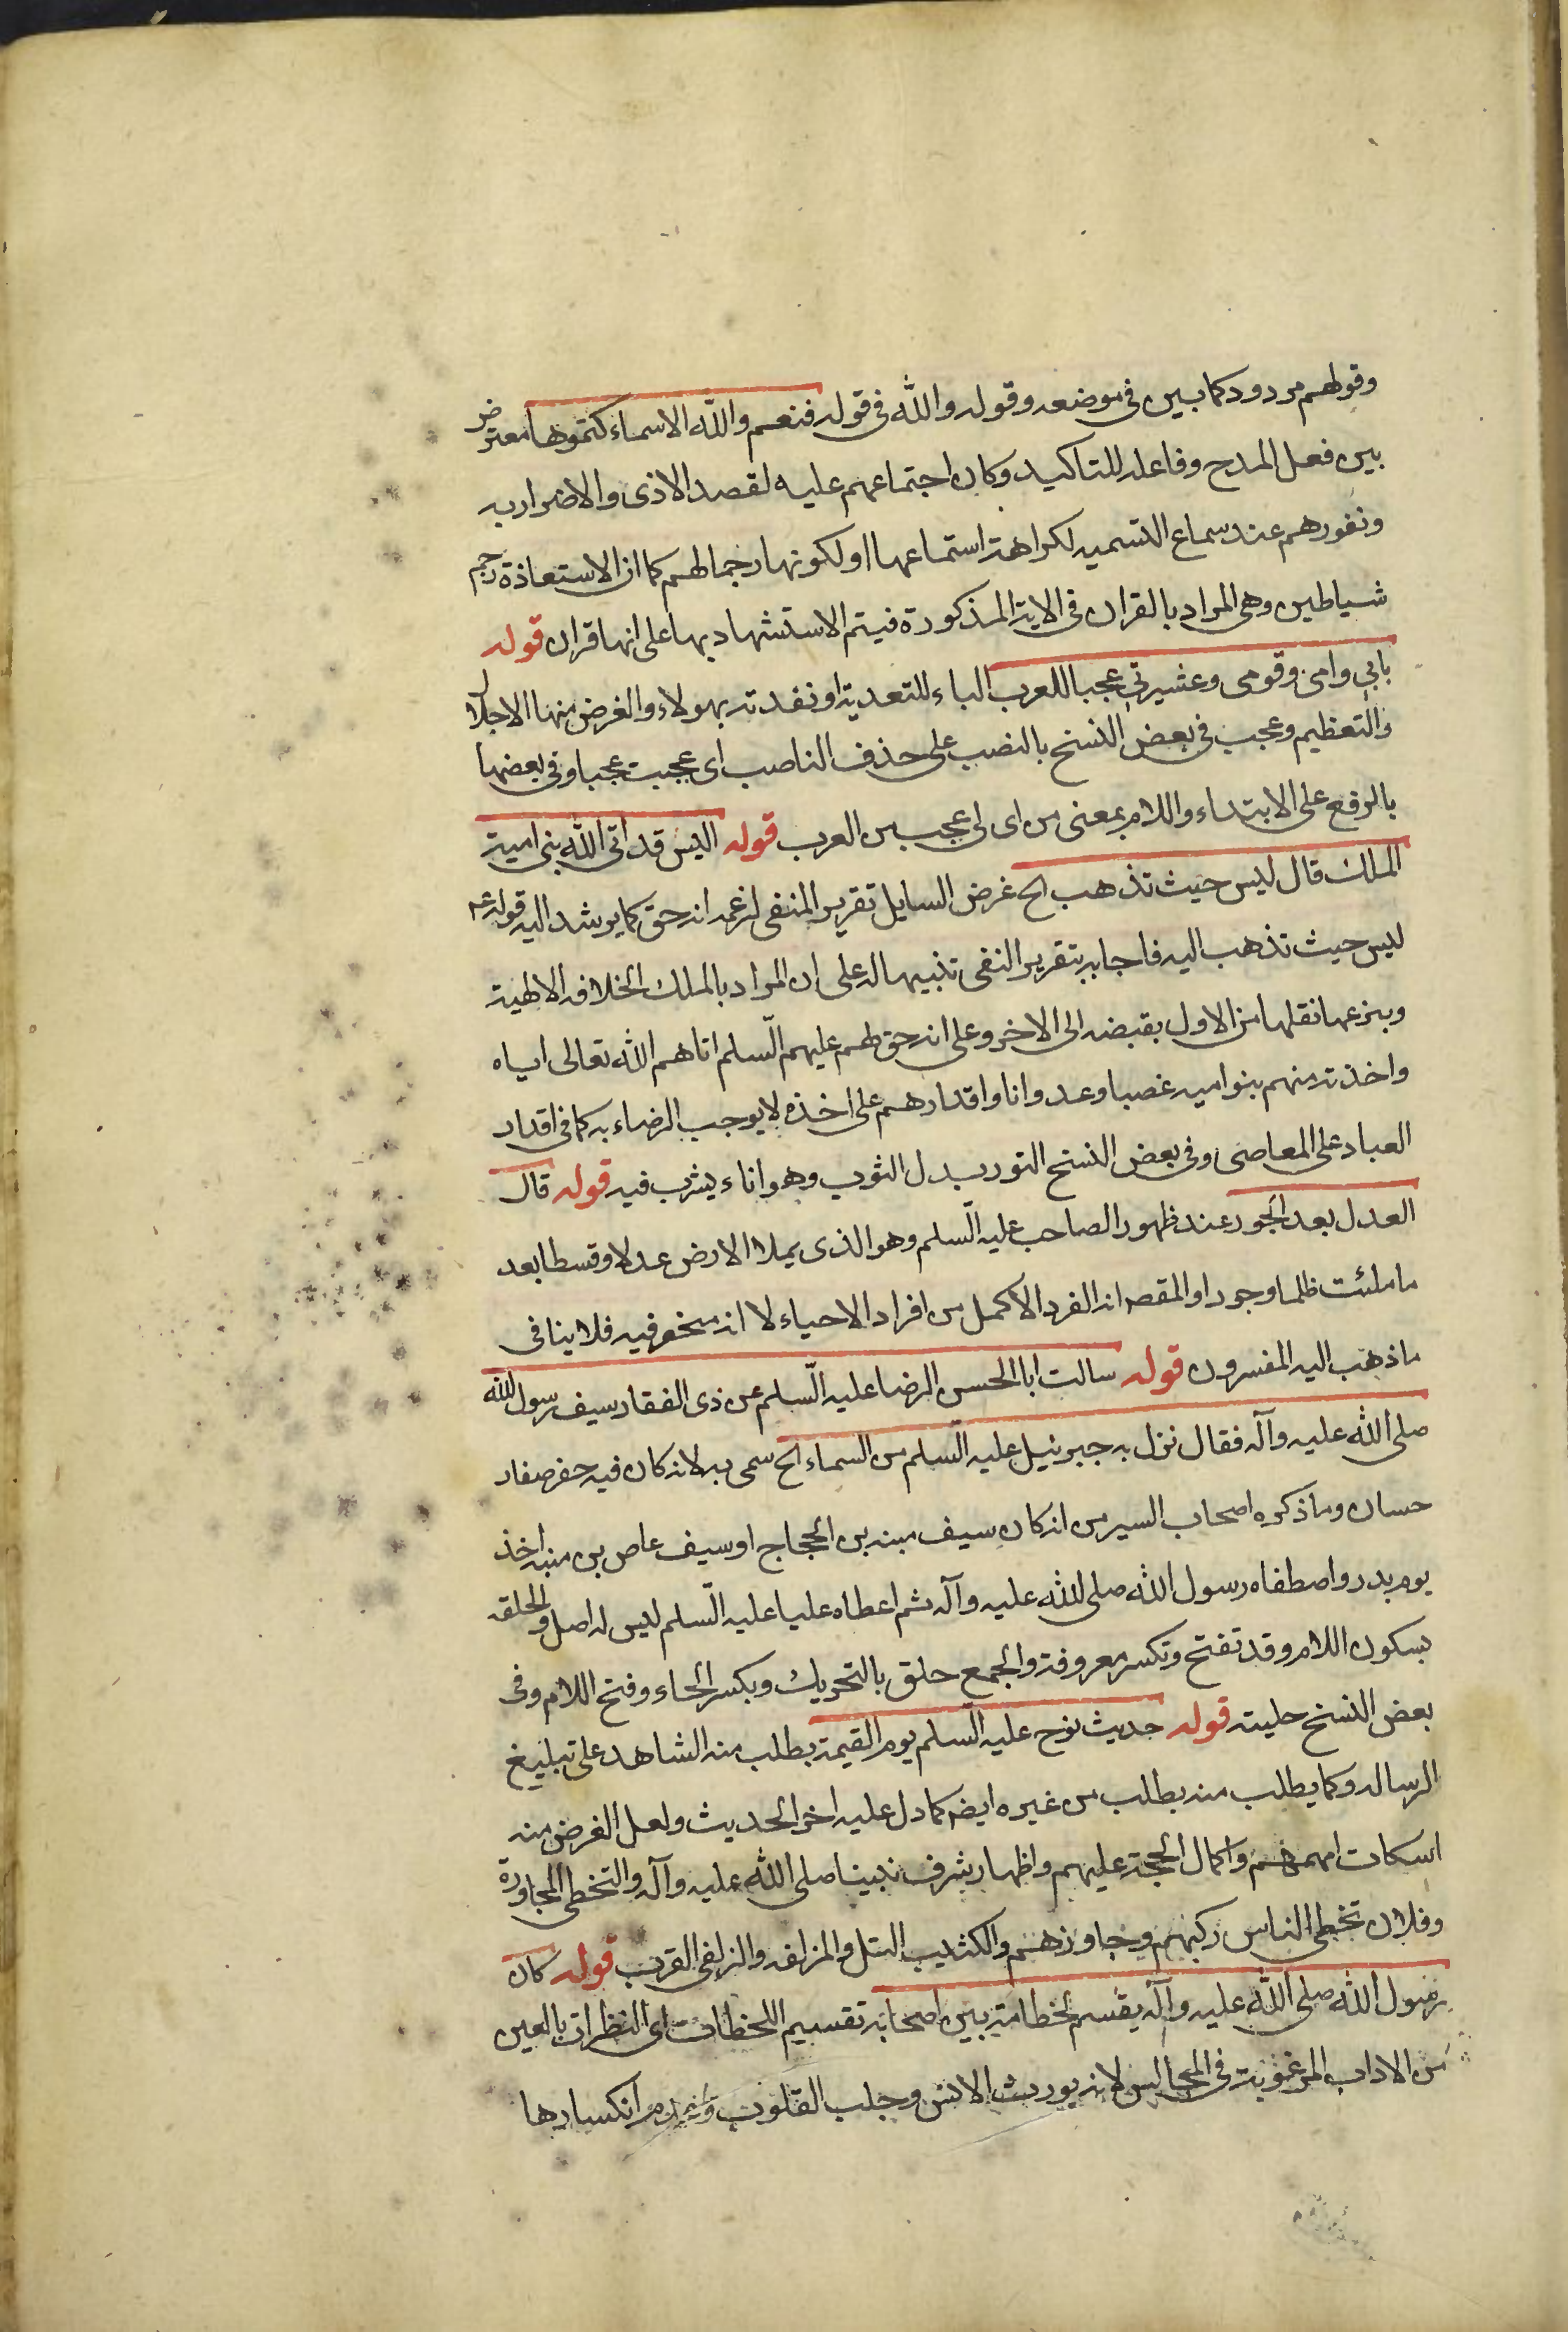 وقولهم مردود كما بين في موضعه وقوله والله في قوله فنعم والله الاسماء كتموها معترض
بين فعل المدح وفاعله للتاكيد وكان اجتماعهم عليه لقصد الاذى والاضرار به
ونفورهم عند سماع التسميه لكراهة استماعها او لكونها رجما لهم كما ان الاستعاذة رجم
شياطين وهى المراد بالقران في الاية المذكورة فيتم الاستشهاد بها على انها قران قوله
بابي وامى وقومى وعشيرتي عجبا للعرب الباء للتعدية او نفدته بهولاء والغرض منها الاجلال
والتعظيم وعجب في بعض النسخ بالنصب على حذف الناصب اى عجبت عجبا وفي بعضها
بالرفع على الابتداء واللام بمعنى من اى لى عجب من العرب قوله اليس قد اتى الله بنى امية
الملك قال ليس حيث تذهب الخ غرض السايل تقرير المنفى لزعمه انه حق كما يرشد اليه قوله ع
ليس حيث تذهب اليه فاجابه بتقرير النفى تنبيها له على ان المراد بالملك الخلافه الالهية
وبنزعها نقلها من الاول بقبضه الى الاخر وعلى انه حق لهم عليهم السلم اتاهم الله تعالى اياه
واخذته منهم بنو اميه غصبا وعدوانا واقدارهم على اخذه لا يوجب الرضاء به كما في اقدار
العباد على المعاصى وفي بعض النسخ التور بدل الثوب وهو اناء يشرب فيه قوله قال
العدل بعد الجور عند ظهور الصاحب عليه السلم وهو الذى يملا الارض عدلا وقسطا بعد
ما ملئت ظلما وجورا والمقصه انه الفرد الاكمل من افراد الاحياء لا انه منحصر فيه فلا ينافى
ما ذهب اليه المفسرون قوله سالت ابا الحسن الرضا عليه السلم عن ذى الفقار سيف رسول الله
صلى الله عليه وآله فقال نزل به جبرئيل عليه السلم من السماء الخ سمى به لانه كان فيه حفر صغار
حسان وما ذكره اصحاب السير من انه كان سيف منبه بن الحجاج او سيف عاص بن منبه اخذ
يوم بدر واصطفاه رسول الله صلى الله عليه وآله ثم اعطاه عليا عليه السلم ليس له اصل والحلقه
بسكون اللام وقد تفتح وتكسر معروفة والجمع حلق بالتحريك وبكسر الحاء وفتح اللام وفى
بعض النسخ حليته قوله حديث نوح عليه السلم يوم القيمة يطلب منه الشاهد على تبليغ
الرساله وكما يطلب منه يطلب من غيره ايضه كما دل عليه اخر الحديث ولعل الغرض منه
اسكات اممهم واكمال الحجة عليهم واظهار شرف نبينا صلى الله عليه وآله والتخطى المجاوزة
وفلان تخطى الناس ركبهم وجاوزهم والكثيب التل والمزلفه والزلفى القرب قوله كان
رسول الله صلى الله عليه وآله يقسم لحظاته بين اصحابه تقسيم اللحظات اى النظرات بالعين
من الاداب المرغوبة في المجالس لانه يورث الانس وجلب القلوب وعدم انكسارها